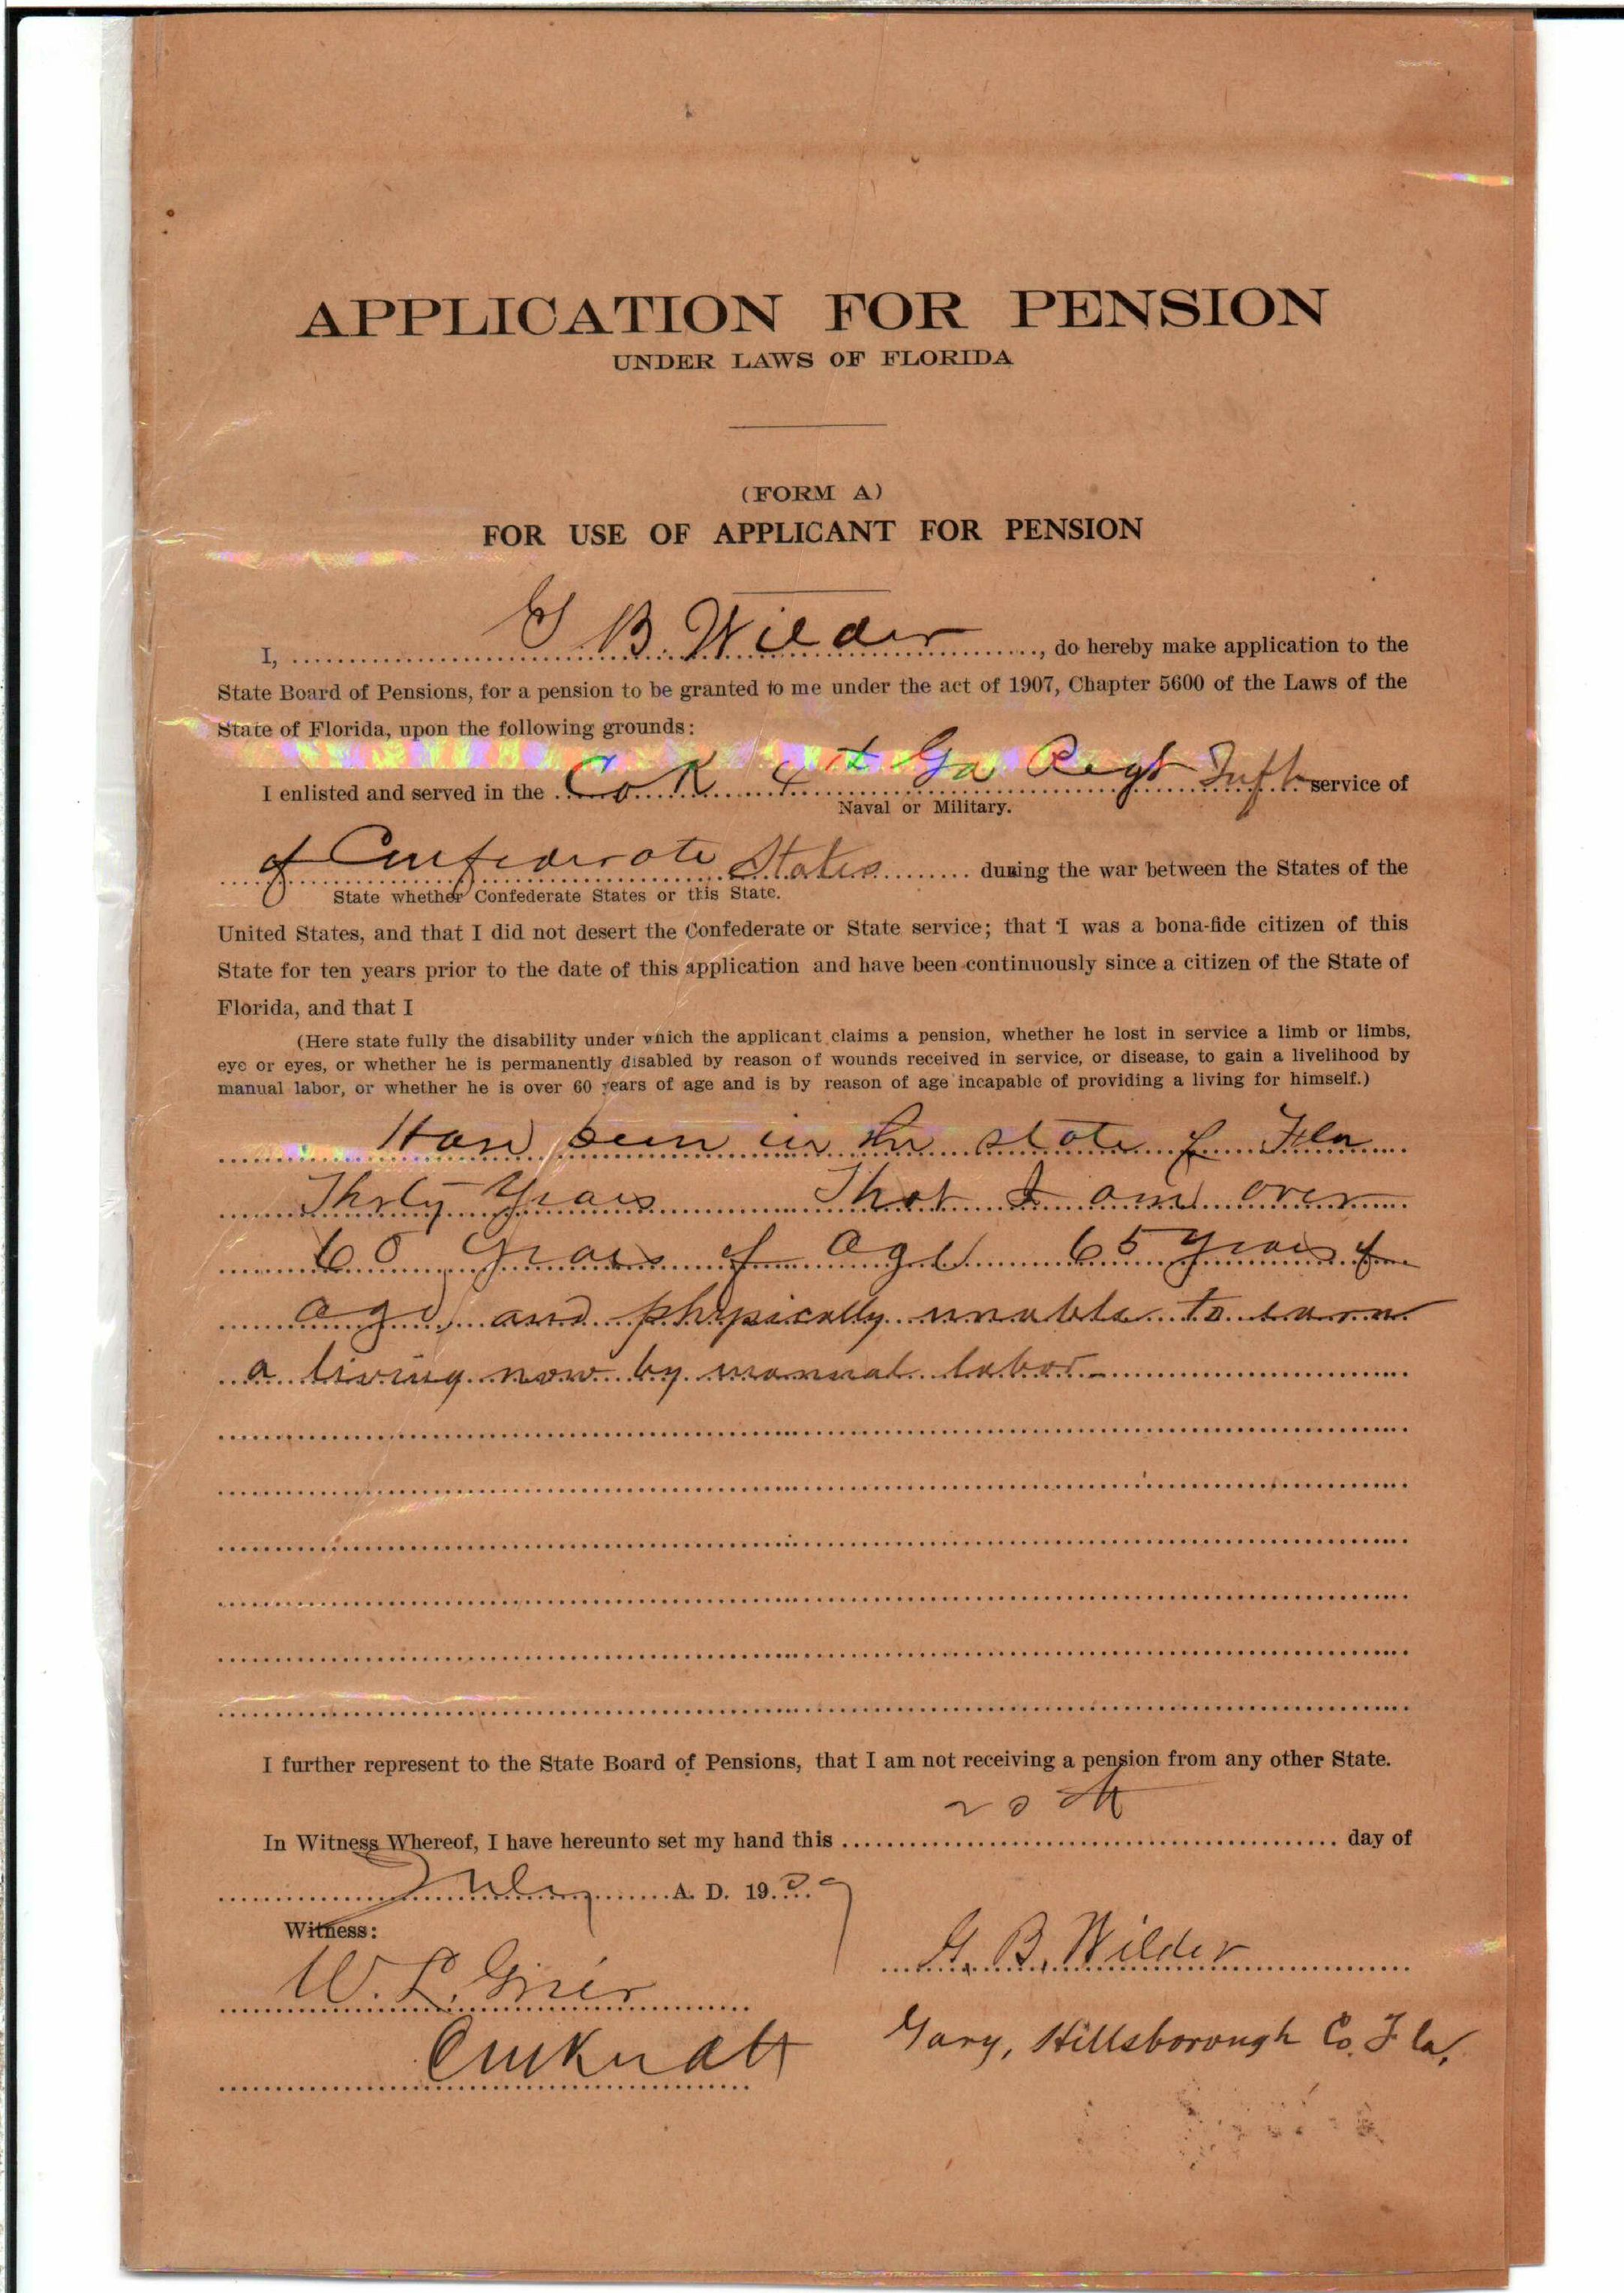 APPLICATION FOR PENSION
UNDER LAWS OF FLORIDA
(FORM A)
FOR USE OF APPLICANT FOR PENSION
I, G B. Wilder, do hereby make application to the
State Board of Pensions, for a pension to be granted to me under the act of 1907, Chapter 5600 of the Laws of the
State of Florida, upon the following grounds:
I enlisted and served in the Co K 4th Ga Regt Inft service of
Naval or Military.
of Confederate States during the war between the States of the
State whether Confederate States or this State.
United States, and that I did not desert the Confederate or State service; that I was a bona-fide citizen of this
State for ten years prior to the date of this application and have been continuously since a citizen of the State of
Florida, and that I
(Here state fully the disability under which the applicant claims a pension, whether he lost in service a limb or limbs,
eye or eyes, or whether he is permanently disabled by reason of wounds received in service, or disease, to gain a livelihood by
manual labor, or whether he is over 60 years of age and is by reason of age incapable of providing a living for himself.)
Have been in the state of Fla
Thirty Years That I am over
60 years of age 65 years of
age, and physically unable to earn
a living now by manual labor-
I further represent to the State Board of Pensions, that I am not receiving a pension from any other State.
In Witness Whereof, I have hereunto set my hand this 20th day of
July A. D. 1909
Witness:
G. B. Wilder
W. L. Grier
Gary, Hillsborough Co. Fla.